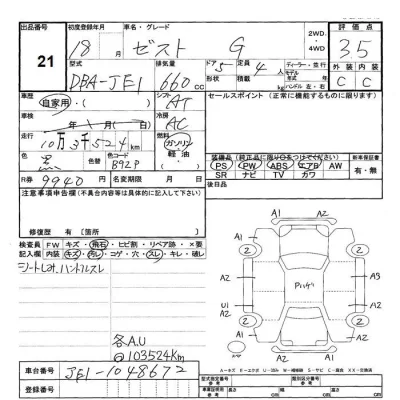 出品番号
21
初度登録年月
18 月
車名・グレード
ゼスト G
2WD・4WD
評価点
3.5
型式
DBA-JE1
排気量
660 cc
ドア 5
形状
定員 4 人
積載 kg
ディーラー・並行
モデル年式
ハンドル 左・右
外装 内装
C C
車歴
自家用・( )
シフト
AT
セールスポイント (正常に機能するものに限ります)
車検
年 月( 日)
冷房
AC
走行
10万3千524km
燃料
ガソリン
軽油
色
黒
色替
色コード
B92P
装備品 (純正品に限り○をつけてください)
PS PW ABS エアB AW
SR ナビ TV カワ
新車保証書
有・無
R券 9940 円
名変期限 月 日
後日品
注意事項申告欄(不具合内容等は具体的に記入して下さい)
修復歴 有 [箇所
検査員記入欄
FW キズ・飛石・ヒビ割・リペア跡・×要
内装 キズ・汚レ・コゲ・穴・スレ・キレ・破レ
シートしみ、ハンドルスレ
各A.U
@103524Km
A1 A2
A1 A1
2 2
A2 A3
Pいたグ
U1 A2
A2
2 2
A1 A2
車台番号
JE1-1048672
登録番号
型式指定番号
類別区分番号
長さ 幅 高さ